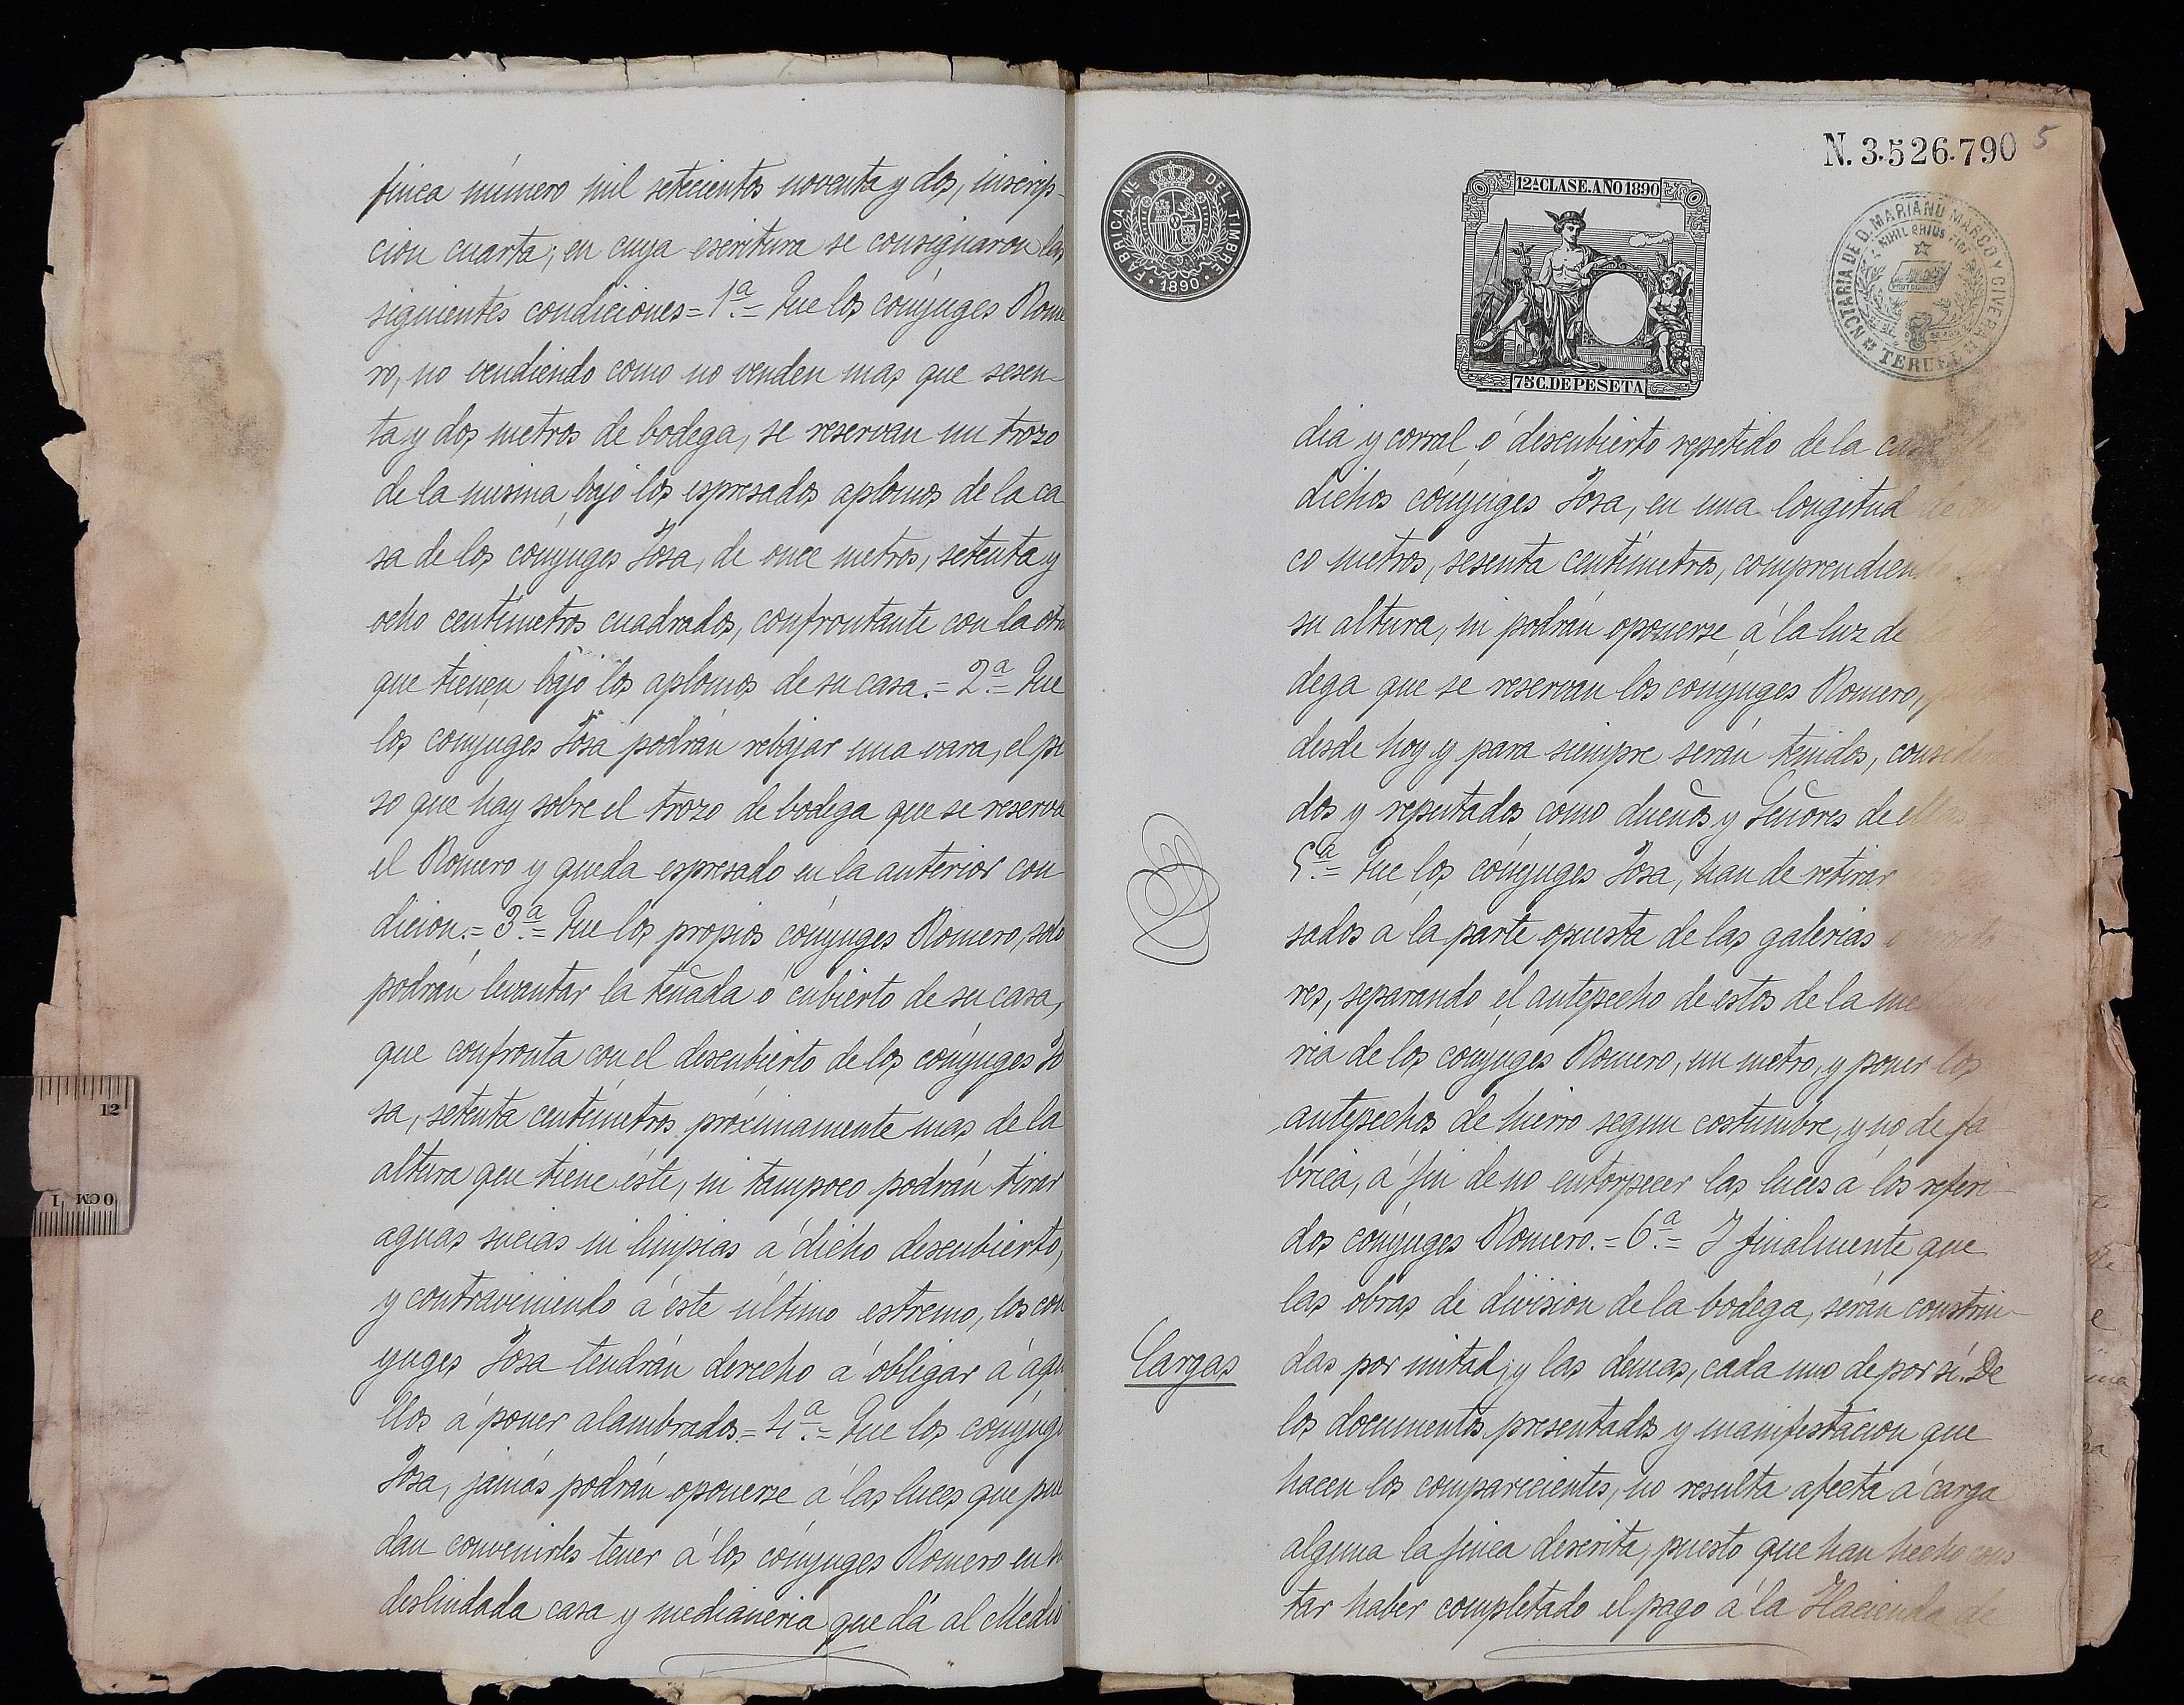 finca número mil setecientos noventa y dos, inscrip-
cion cuarta; en cuya escritura se consignaron las
siguientes condiciones = 1ª.= Que los cónyuges Rome
ro, no vendiendo como no venden mas que sesen-
ta y dos metros de bodega, se reservan un trozo
de la misma bajo los espresados aplomos de la ca
sa de los cónyuges Josa, de once metros, setenta y
ocho centímetros cuadrados, confrontante con la otra
que tienen bajo los aplomos de su casa.= 2ª.= Que
los cónyuges Josa podrán rebajar una vara, el pi
so que hay sobre el trozo de bodega que se reserva
el Romero y queda espresado en la anterior con
dicion.= 3ª.= Que los propios cónyuges Romero, solo
podrán levantar la teñada ó cubierto de su casa,
que confronta con el descubierto de los cónyuges Jo
sa, setenta centímetros próximamente mas de la
altura qeu tiene éste, ni tampoco podrán tirar
aguas sucias ni limpias á dicho descubierto,
y contraviniendo á éste último estremo, los cón
yuges Josa tendrán derecho á obligar á aque
llos á poner alambrados.= 4ª.= Que los cónyuge
Josa, jamás podrán oponerse á las luces que pue
dan convenirles tener á los cónyuges Romero en
deslindada casa y medianeria que dá al Medio
N. 3.526.790 5
FABRICA Nˡ. DEL TIMBRE
1890
12ª CLASE. AÑO 1890
75 C. DE PESETA
NOTARIA DE D. MARIANO MARCO Y CIVERA
NIHIL PRIUS FIDE
TERUEL
dia y corral ó descubierto repetido de la casa
dichos cónyuges Josa, en una longitud de
co metros, sesenta centímetros, comprendien
su altura, ni podrán oponerse á la luz de
dega que se reservan los cónyuges Romero,
desde hoy y para siempre serán tenidos, consider
dos y reputados como dueños y Señores de ellas
5ª.= Que los cónyuges Josa, han de retirar
sados á la parte opuesta de las galerias
res, separando el antepecho de estos de la me
ria de los cónyuges Romero, un metro, y poner los
antepechos de hierro segun costumbre, y no de fá
brica, á fin de no entorpecer las luces á los referi-
dos cónyuges Romero.= 6ª.= Y finalmente que
las obras de division de la bodega, serán construi-
Cargas
das por mitad; y las demas, cada uno de por sí. De
los documentos presentados y manifestacion que
hacen los comparecientes, no resulta afecta á carga
alguna la finca descrita, puesto que han hecho cons
tar haber completado el pago á la Hacienda de